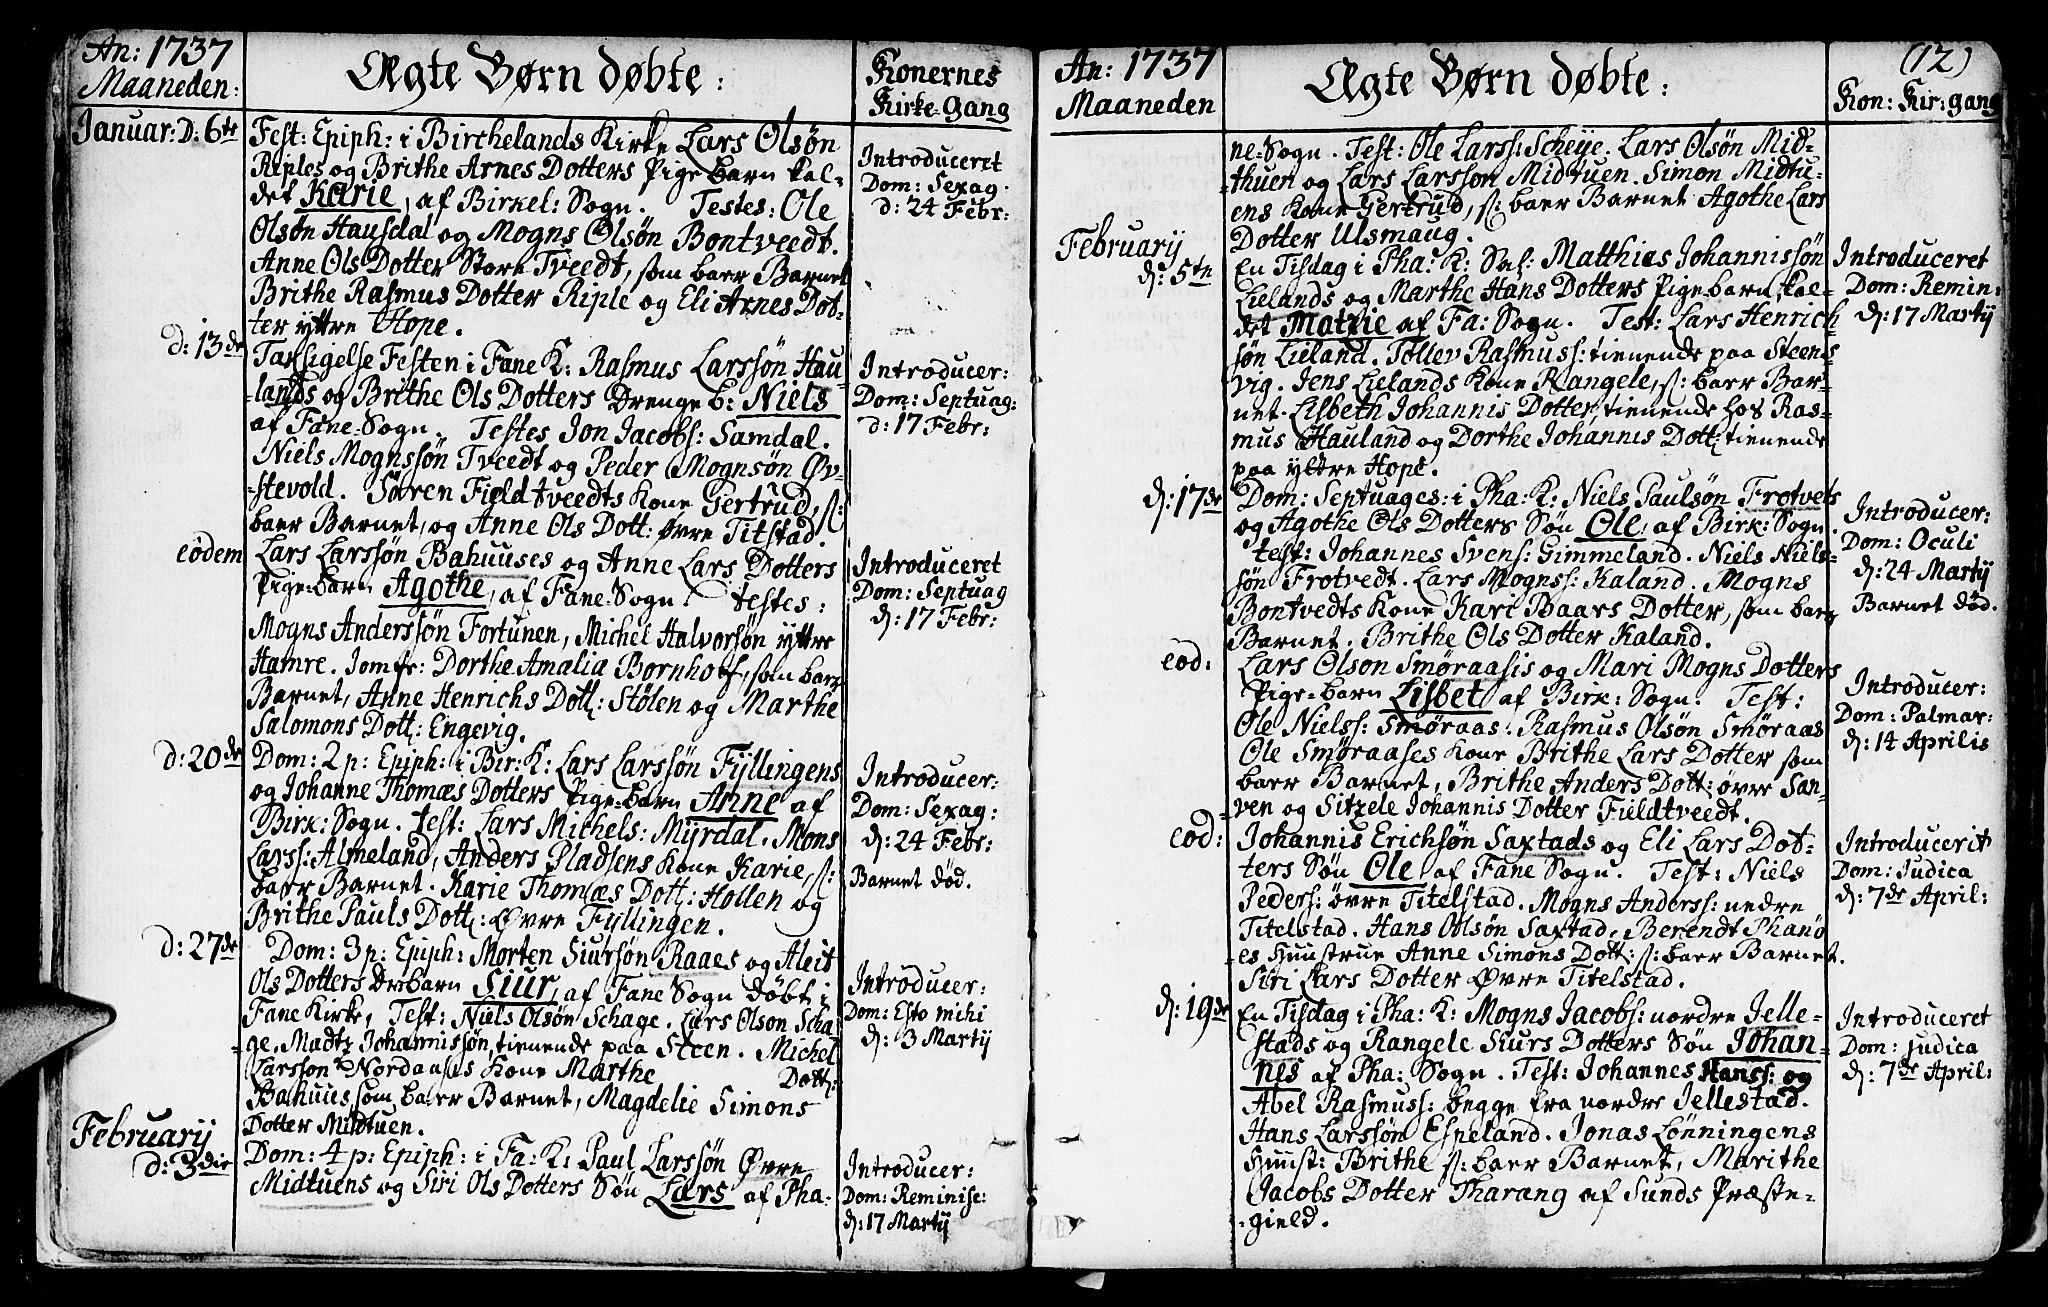 An: 1737
Maaneden:
Ægte Børn døbte:
Konernes
Kirke-Gang
Januar: D: 6te
Fest: Epiph: i Birchelands Kirke Lars Olsøn
Riples og Brithe Arnes Dotters Pige barn kal-
det Karie, af Birkel: Sogn. Testes: Ole
Olsøn Hausdal og Mogns Olsøn Bontveedt.
Anne Ols Dotter Store Tveedt, som baer Barnet
Brithe Rasmus Dotter Riple og Eli Arnes Dot-
ter yttre Hope.
Introduceret
Dom: Sexag.
d: 24 Febr:
d: 13de
Taksigelse Festen i Fane K: Rasmus Larssøn Hau-
-lands og Brithe Ols Dotters Drenge b: Niels
af Fane-Sogn. Testes Jon Jacobs: Samdal.
Niels Mognssøn Tveedt og Peder Mognsøn Øv-
-stevold. Søren Fieldtveedts Kone Gertrud, s:
baer Barnet, og Anne Ols Dott: øvre Titstad.
Introducer:
Dom: Septuag:
d: 17 Febr:
eodem
Lars Larssøn Bahuuses og Anne Lars Dotters
Pige-barn Agothe, af Fane-Sogn. Testes:
Mogns Anderssøn Fortunen, Michel Halvorsøn yttre
Hamre. Jomfr: Dorthe Amalia Bornhof, som baer
Barnet, Anne Henrichs Dott: Stølen og Marthe
Salomons Dott: Engevig.
Introduceret
Dom: Septuag
d: 17 Febr:
d: 20de
Dom: 2 p: Epiph: i Bir: K: Lars Larssøn Fyllingens
og Johanne Thomæs Dotters Pige-barn Anne af
Birk: Sogn. Test: Lars Michels: Myrdal. Mons
Larss: Almeland, Anders Pladsens Kone Karie, s:
baer Barnet. Karie Thomæs Dott: Hollen og
Brithe Pauls Dott: Øvre Fyllingen.
Introducer:
Dom: Sexag:
d: 24 Febr:
Barnet död.
d: 27de
Dom: 3 p: Epiph: Morten Siursøn Raaes og Aleit
Ols Dotters Dr:barn Siur, af Fane Sogn döbt i
Fane Kirke, Test: Niels Olsøn Schage. Lars Olson Scha-
ge, Madts Johannissøn, tienende paa Steen. Michel
Larsson Nordaases Kone Marthe Dott:
Bahuus, som baer Barnet, Magdelie Simons
Dotter Midtuen.
Introducer:
Dom: Esto mihi
d: 3 Martij
Februarij
d: 3die
Dom: 4 p: Epiph: i Fa: K: Paul Larssøn Øvre
Midtuens og Siri Ols Dotters Søn Lars af Pha-
Introducer:
Dom: Reminisc:
d: 17 Martij
An: 1737
Maaneden
Ægte Børn døbte:
(12)
Kon: Kir: gang
ne-Sogn. Test: Ole Larss: Scheije. Lars Olsøn Mid-
-thuen og Lars Larssøn Midtuen. Simon Midtu-
ens Kone Gertrud, s: baer Barnet Agothe Lars
Dotter Ulsmaug.
Februarij
d: 5te
En Tisdag i Pha: K: Sal: Matthias Johannissøn
Lielands og Marthe Hans Dotters Pige barn, kal-
det Matzie af Fa: Sogn. Test: Lars Henrich-
søn Lieland. Tollev Rasmuss: tienende paa Steens
vig. Jens Lielands Kone Rangele, s: baer Bar-
net. Lisbeth Johannis Dotter, tienende hos Ras-
mus Hauland og Dorthe Johannis Dott: tienende
paa yttre Hope.
Introduceret
Dom: Remin:
d: 17 Martij
d: 17de
Dom: Septuages: i Pha: K: Niels Paulsøn Frotvets
og Agothe Ols Dotters Søn Ole, af Birk: Sogn
Test: Johannes Svens: Gimmeland. Niels Niels-
søn Frotvedt. Lars Mognss: Kaland. Mogns
Bontvedts Kone Kari Baars Dotter, som baer
Barnet. Brithe Ols Dotter Kaland.
Introducer:
Dom: Oculi
d: 24 Martij
Barnet död.
eod:
Lars Olson Smøraasis og Mari Mogns Dotters
Pige-barn Lisbet, af Birk: Sogn. Test:
Ole Nielss: Smøraas. Rasmus Olsøn Smøraas
Ole Smøraases Kone Brithe Lars Dotter som
baer Barnet, Brithe Anders Dott: øvre San-
ven og Sitzele Johannis Dotter Fieldtveedt.
Introducer:
Dom: Palmar:
d: 14 Aprilis
eod:
Johannis Erichsøn Saxtads og Eli Lars Dot-
ters Søn Ole, af Fane Sogn. Test: Niels
Peders: øvre Titelstad. Mogns Anderss: nedre
Titelstad. Hans Olsøn Saxtad, Berendt Phanö
es Huustrue Anne Simons Dott: s: baer Barnet.
Siri Lars Dotter Øvre Titelstad.
Introducerit
Dom: Judica
d: 7de April:
d: 19de
En Tisdag i Pha: K: Mogns Jacobs: nordre Jelle-
stads og Rangele Siurs Dotters Søn Johan-
nes af Pha: Sogn. Test: Johannes Hanss: og
Abel Rasmuss: begge fra nordre Jellestad.
Hans Larssøn Espeland. Jonas Lønningens
Huust: Brithe s: baer Barnet, Marithe
Jacobs Dotter Tharang af Sunds Præste-
-gield.
Introduceret
Dom: Judica
d: 7de April: